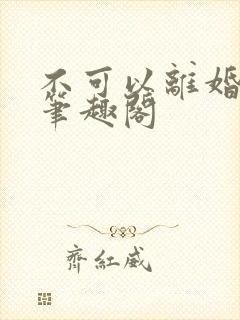 不可以離婚
筆趣閣
齊紅威